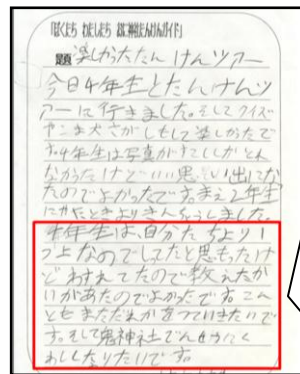 「ぼくたち わたしたち 鬼神社たんけんガイド」
題 楽しかったたんけんツアー
今日4年生とたんけんツ
アーに行きました。そしてクイズ
やこま犬さがしもして楽しかったで
す。4年生は写真がすこししかとれ
なかったけどいい思い出にな
たのでよかったです。まえ2年生
にきたときよりきんちょうしました。
4年生は自分たちより1
つ上なのでしてたと思もったけ
どわすれてたので教えたか
いがあたのでよかったです。こん
どもまただれかをつれていきたいで
す。そして鬼神社で
わしくなりたいです。